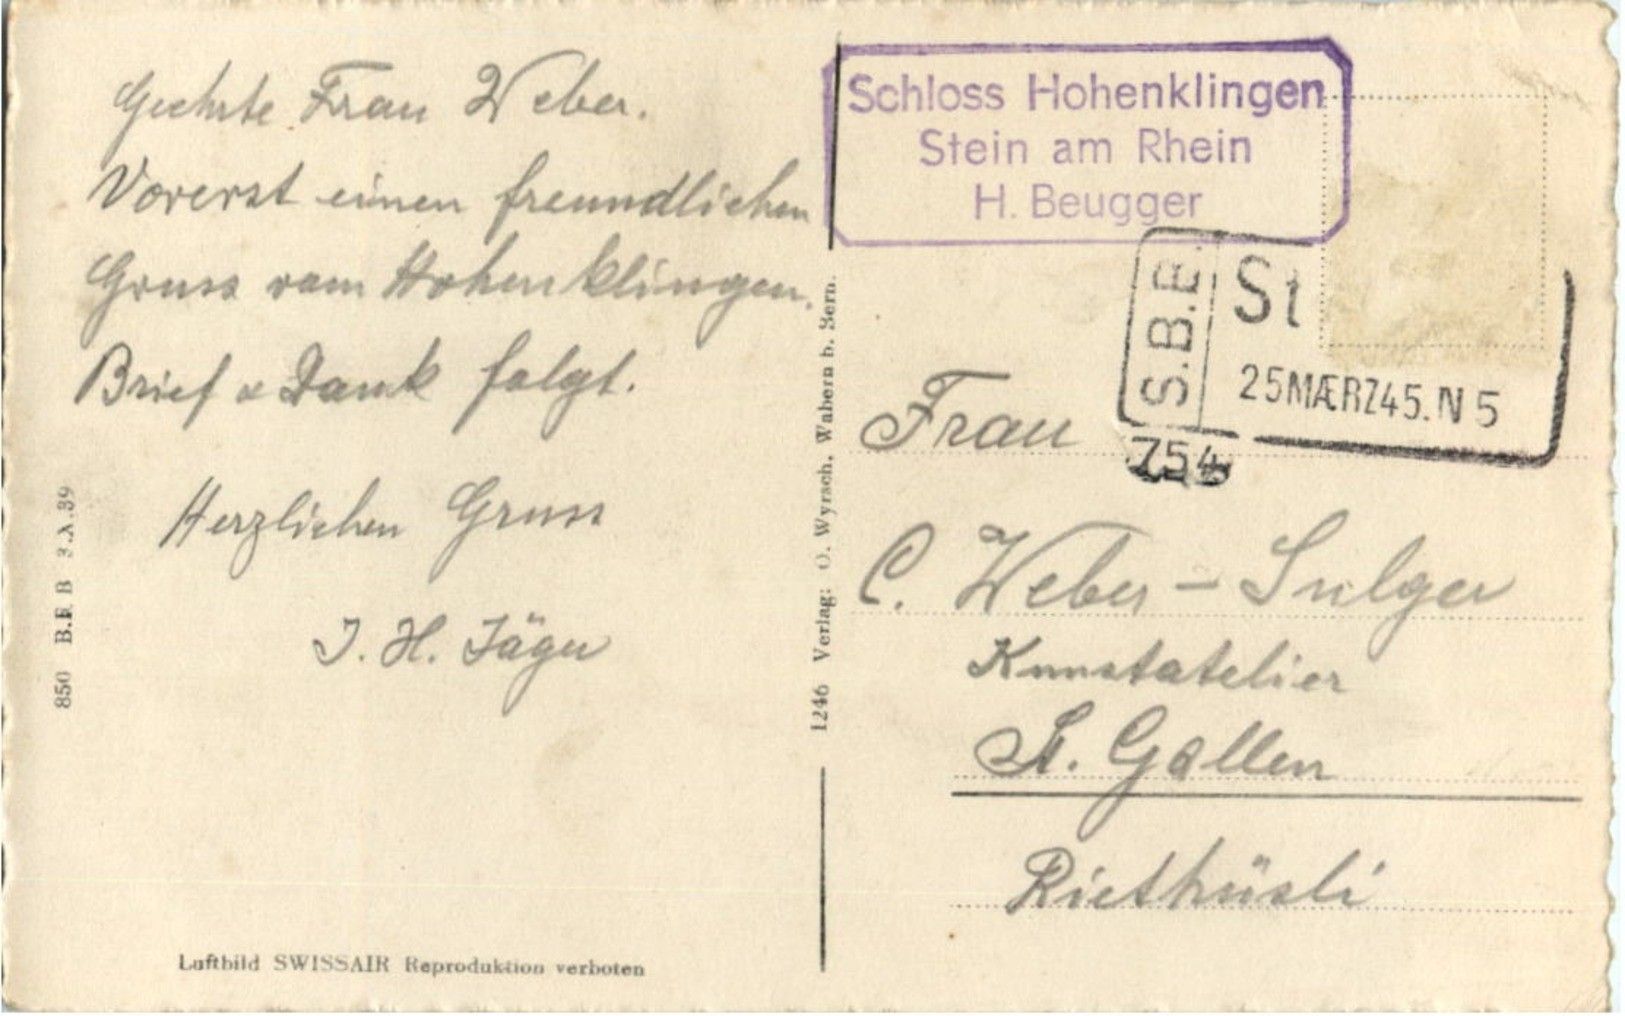 Geehrte Frau Weber.
Vorerst einen freundlichen
Gruss vom Hohenklingen.
Brief & Dank folgt.
Herzlichen Gruss
J. H. Jäger
850 B.R.B 3.X.39
Luftbild SWISSAIR Reproduktion verboten
1246 Verlag: O. Wyrsch, Wabern b. Bern.
Schloss Hohenklingen
Stein am Rhein
H. Beugger
S.B.B.
St
25MÆRZ45.N5
754
Frau
C. Weber - Sulger
Kunstatelier
St. Gallen
Riethüsli